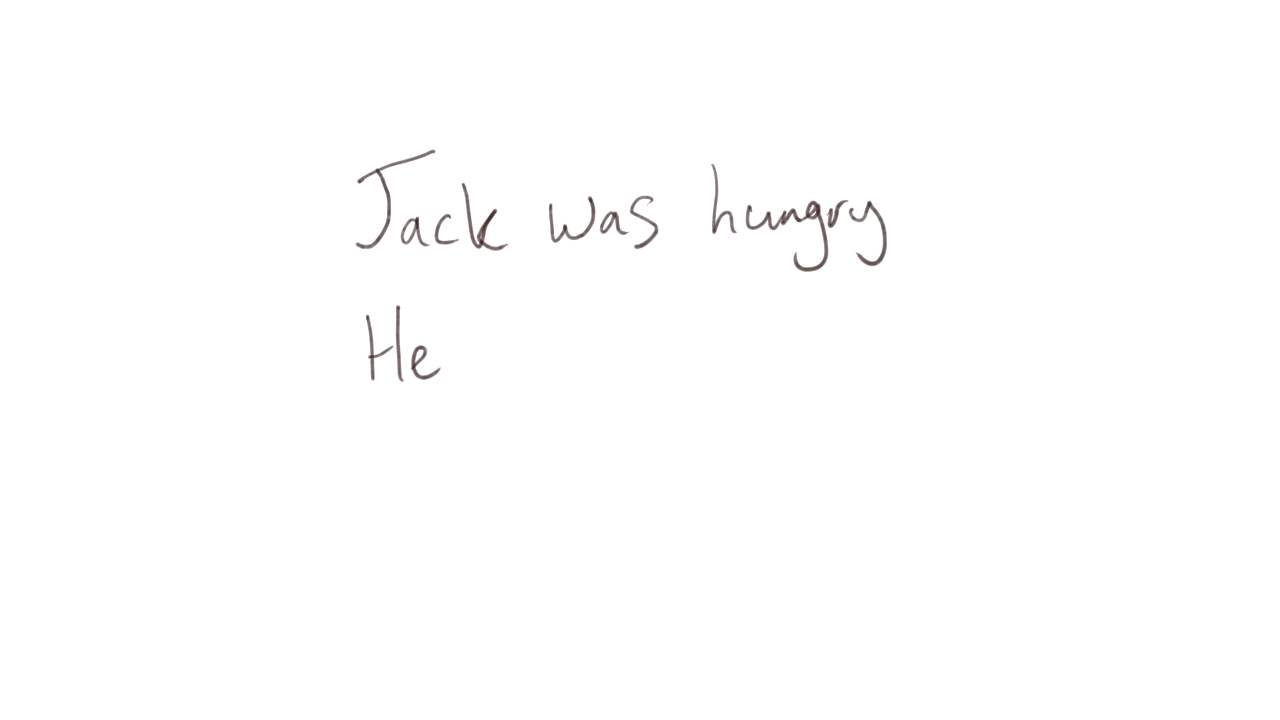 Jack was hungry
He